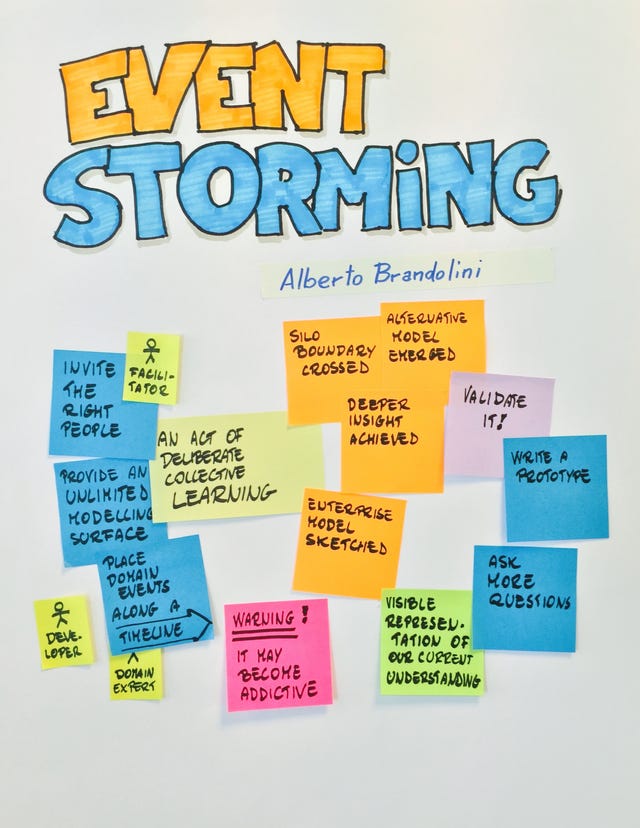 EVENT
STORMING
Alberto Brandolini
INVITE
THE
RIGHT
PEOPLE
FACILI-
TATOR
AN ACT OF
DELIBERATE
COLLECTIVE
LEARNING
PROVIDE AN
UNLIMITED
MODELLING
SURFACE
PLACE
DOMAIN
EVENTS
ALONG A
TIMELINE
DEVE-
LOPER
DOMAIN
EXPERT
SILO
BOUNDARY
CROSSED
ALTERNATIVE
MODEL
EMERGED
DEEPER
INSIGHT
ACHIEVED
VALIDATE
IT!
WRITE A
PROTOTYPE
ENTERPRISE
MODEL
SKETCHED
ASK
MORE
QUESTIONS
WARNING!
IT MAY
BECOME
ADDICTIVE
VISIBLE
REPRESEN-
TATION OF
OUR CURRENT
UNDERSTANDING